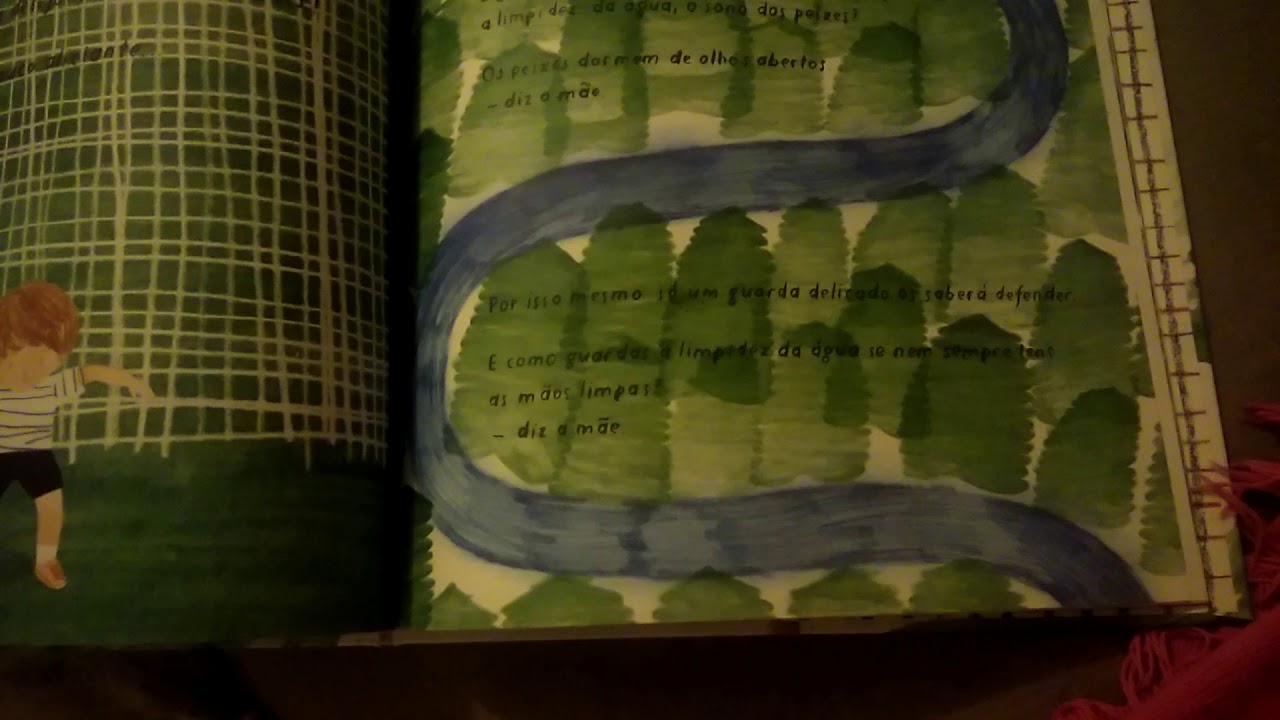 distante...
a limpidez da água, o sono dos peixes?
Os peixes dormem de olhos abertos
– diz a mãe
Por isso mesmo só um guarda delicado os saberá defender.
E como guardas a limpidez da água se nem sempre tens
as mãos limpas?
– diz a mãe